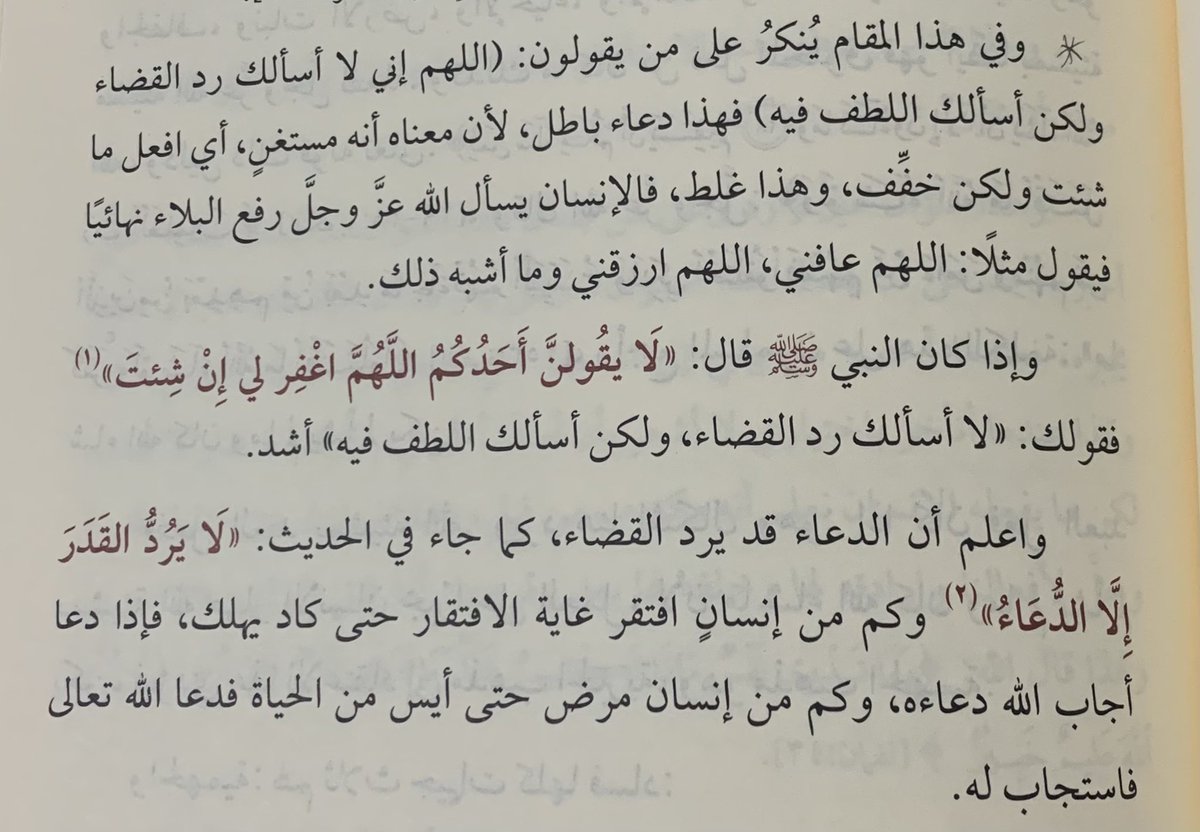 * وفي هذا المقام يُنكرُ على من يقولون: (اللهم إني لا أسألك رد القضاء
ولكن أسألك اللطف فيه) فهذا دعاء باطل، لأن معناه أنه مستغنٍ، أي افعل ما
شئت ولكن خفِّف، وهذا غلط، فالإنسان يسأل الله عزَّ وجلَّ رفع البلاء نهائيًا
فيقول مثلًا: اللهم عافني، اللهم ارزقني وما أشبه ذلك.
وإذا كان النبي ﷺ قال: «لَا يقُولنَّ أَحَدُكُمُ اللَّهُمَّ اغْفِر لي إِنْ شِئتَ»(١)
فقولك: «لا أسألك رد القضاء، ولكن أسألك اللطف فيه» أشد.
واعلم أن الدعاء قد يرد القضاء، كما جاء في الحديث: «لَا يَرُدُّ القَدَرَ
إِلَّا الدُّعَاءُ»(٢) وكم من إنسانٍ افتقر غاية الافتقار حتى كاد يهلك، فإذا دعا
أجاب الله دعاءه، وكم من إنسان مرض حتى أيس من الحياة فدعا الله تعالى
فاستجاب له.